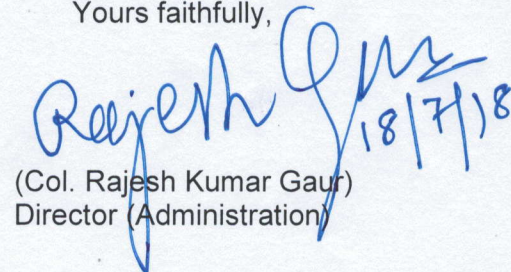 Yours faithfully,
Rajesh Gaur
18/7/18
(Col. Rajesh Kumar Gaur)
Director (Administration)